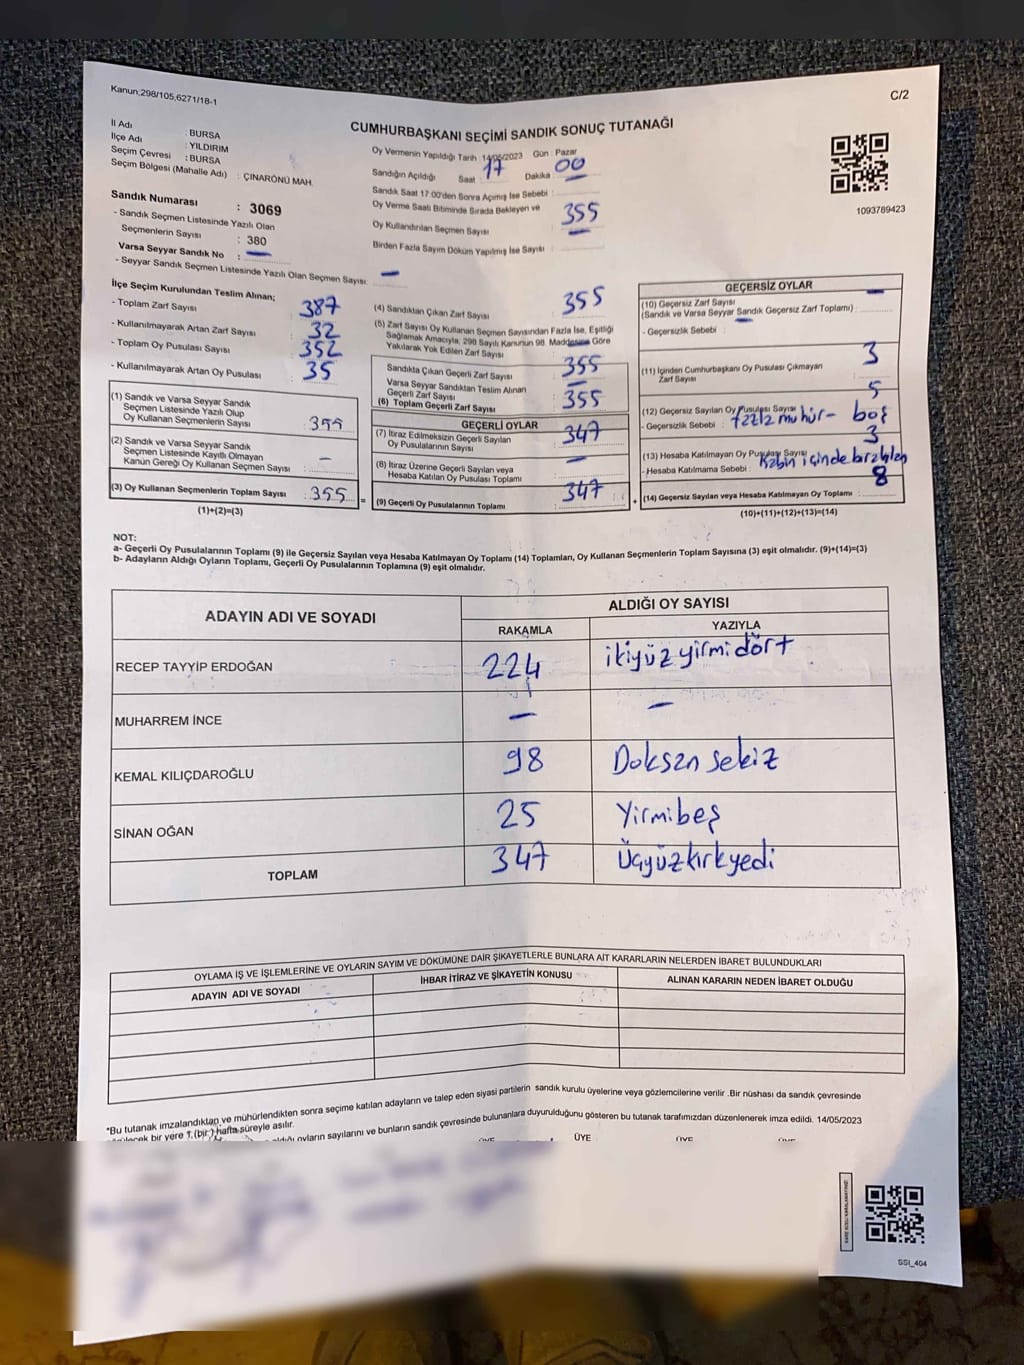 Kanun,298/105,6271/18-1
C/2
CUMHURBAŞKANI SEÇİMİ SANDIK SONUÇ TUTANAĞI
İl Adı : BURSA
İlçe Adı : YILDIRIM
Seçim Çevresi : BURSA
Seçim Bölgesi (Mahalle Adı) : ÇINARÖNÜ MAH.
Oy Vermenin Yapıldığı Tarih 14/05/2023 Gün : Pazar
Sandığın Açıldığı Saat 17 Dakika 00
Sandık Saat 17:00'den Sonra Açımış İse Sebebi :
Oy Verme Saati Bitiminde Sırada Bekleyen ve
Oy Kullandırılan Seçmen Sayısı 355
Birden Fazla Sayım Döküm Yapılmış İse Sayısı :
1093789423
Sandık Numarası : 3069
- Sandık Seçmen Listesinde Yazılı Olan
Seçmenlerin Sayısı : 380
Varsa Seyyar Sandık No : —
- Seyyar Sandık Seçmen Listesinde Yazılı Olan Seçmen Sayısı: —
İlçe Seçim Kurulundan Teslim Alınan;
- Toplam Zarf Sayısı : 387
- Kullanılmayarak Artan Zarf Sayısı : 32
- Toplam Oy Pusulası Sayısı : 352
- Kullanılmayarak Artan Oy Pusulası : 35
(1) Sandık ve Varsa Seyyar Sandık
Seçmen Listesinde Yazılı Olup
Oy Kullanan Seçmenlerin Sayısı : 355
(2) Sandık ve Varsa Seyyar Sandık
Seçmen Listesinde Kayıtlı Olmayan
Kanun Gereği Oy Kullanan Seçmen Sayısı : –
(3) Oy Kullanan Seçmenlerin Toplam Sayısı : 355
(1)+(2)=(3)
(4) Sandıktan Çıkan Zarf Sayısı 355
(5) Zarf Sayısı Oy Kullanan Seçmen Sayısından Fazla İse, Eşitliği
Sağlamak Amacıyla, 298 Sayılı Kanunun 98. Maddesine Göre
Yakılarak Yok Edilen Zarf Sayısı
Sandıkta Çıkan Geçerli Zarf Sayısı 355
Varsa Seyyar Sandıktan Teslim Alınan
Geçerli Zarf Sayısı —
(6) Toplam Geçerli Zarf Sayısı 355
GEÇERLİ OYLAR
(7) İtiraz Edilmeksizin Geçerli Sayılan
Oy Pusulalarının Sayısı 347
(8) İtiraz Üzerine Geçerli Sayılan veya
Hesaba Katılan Oy Pusulası Toplamı —
= (9) Geçerli Oy Pusulalarının Toplamı 347
GEÇERSİZ OYLAR
(10) Geçersiz Zarf Sayısı
(Sandık ve Varsa Seyyar Sandık Geçersiz Zarf Toplamı) : —
- Geçersizlik Sebebi : —
(11) İçinden Cumhurbaşkanı Oy Pusulası Çıkmayan
Zarf Sayısı 3
(12) Geçersiz Sayılan Oy Pusulası Sayısı 5
- Geçersizlik Sebebi : fazla mühür- boş
(13) Hesaba Katılmayan Oy Pusulası Sayısı 3
- Hesaba Katılmama Sebebi : Kabin içinde bırakılan
+ (14) Geçersiz Sayılan veya Hesaba Katılmayan Oy Toplamı : 8
(10)+(11)+(12)+(13)=(14)
NOT:
a- Geçerli Oy Pusulalarının Toplamı (9) ile Geçersiz Sayılan veya Hesaba Katılmayan Oy Toplamı (14) Toplamları, Oy Kullanan Seçmenlerin Toplam Sayısına (3) eşit olmalıdır. (9)+(14)=(3)
b- Adayların Aldığı Oyların Toplamı, Geçerli Oy Pusulalarının Toplamına (9) eşit olmalıdır.
ADAYIN ADI VE SOYADI
ALDIĞI OY SAYISI
RAKAMLA YAZIYLA
RECEP TAYYİP ERDOĞAN 224 ikiyüz yirmi dört
MUHARREM İNCE — —
KEMAL KILIÇDAROĞLU 98 Doksan sekiz
SİNAN OĞAN 25 Yirmibeş
TOPLAM 347 Üçyüzkırkyedi
OYLAMA İŞ VE İŞLEMLERİNE VE OYLARIN SAYIM VE DÖKÜMÜNE DAİR ŞİKAYETLERLE BUNLARA AİT KARARLARIN NELERDEN İBARET BULUNDUKLARI
ADAYIN ADI VE SOYADI İHBAR İTİRAZ VE ŞİKAYETİN KONUSU ALINAN KARARIN NEDEN İBARET OLDUĞU
*Bu tutanak imzalandıktan ve mühürlendikten sonra seçime katılan adayların ve talep eden siyasi partilerin sandık kurulu üyelerine veya gözlemcilerine verilir .Bir nüshası da sandık çevresinde
bir yere 1 (bir) hafta süreyle asılır.
oyların sayılarını ve bunların sandık çevresinde bulunanlara duyurulduğunu gösteren bu tutanak tarafımızdan düzenlenerek imza edildi. 14/05/2023
ÜYE ÜYE ÜYE ÜYE
SSI_404